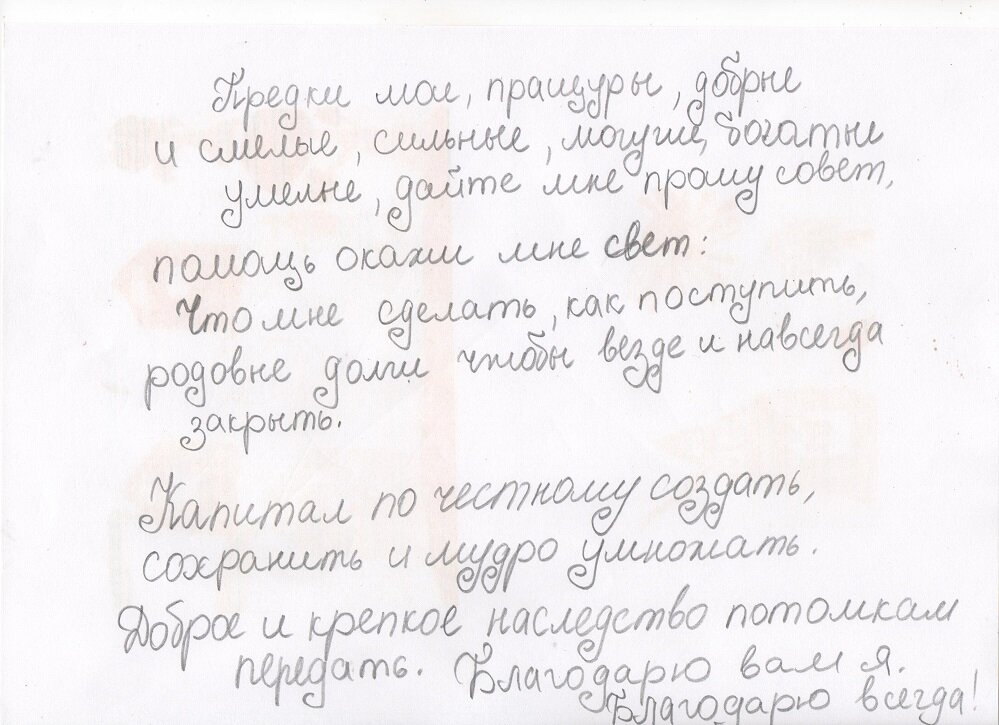 Предки мои, пращуры, добрые
и смелые, сильные, могучие, богатые
умелые, дайте мне прошу совет,
помощь окажи мне свет:
Что мне сделать, как поступить,
родовые долги чтобы везде и навсегда
закрыть.
Капитал по честному создать,
сохранить и мудро умножать.
Доброе и крепкое наследство потомкам
передать. Благодарю вам я.
Благодарю всегда!